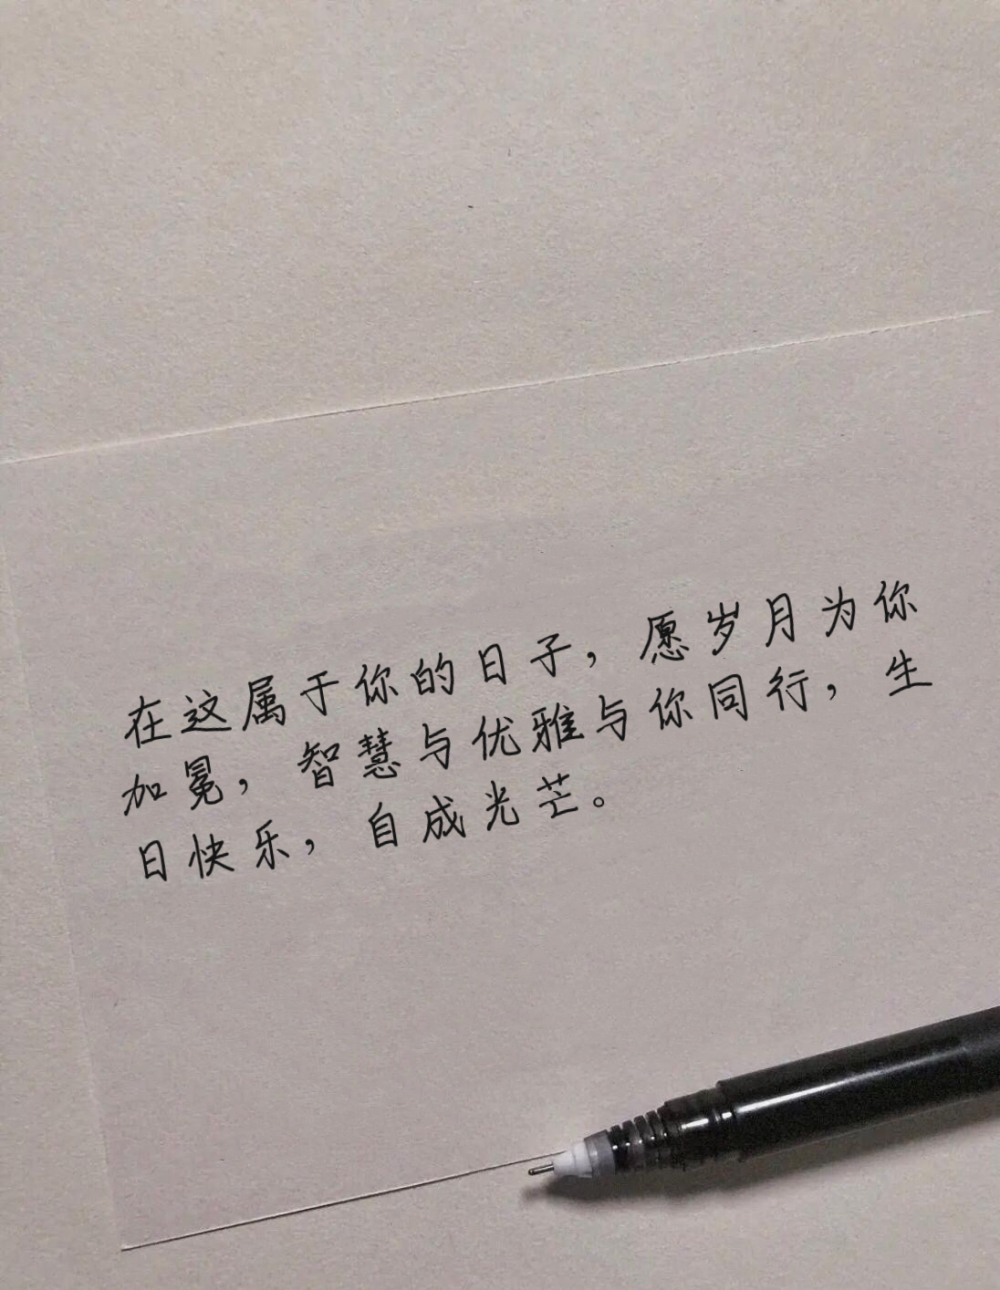 在这属于你的日子，愿岁月为你
加冕，智慧与优雅与你同行，生
日快乐，自成光芒。